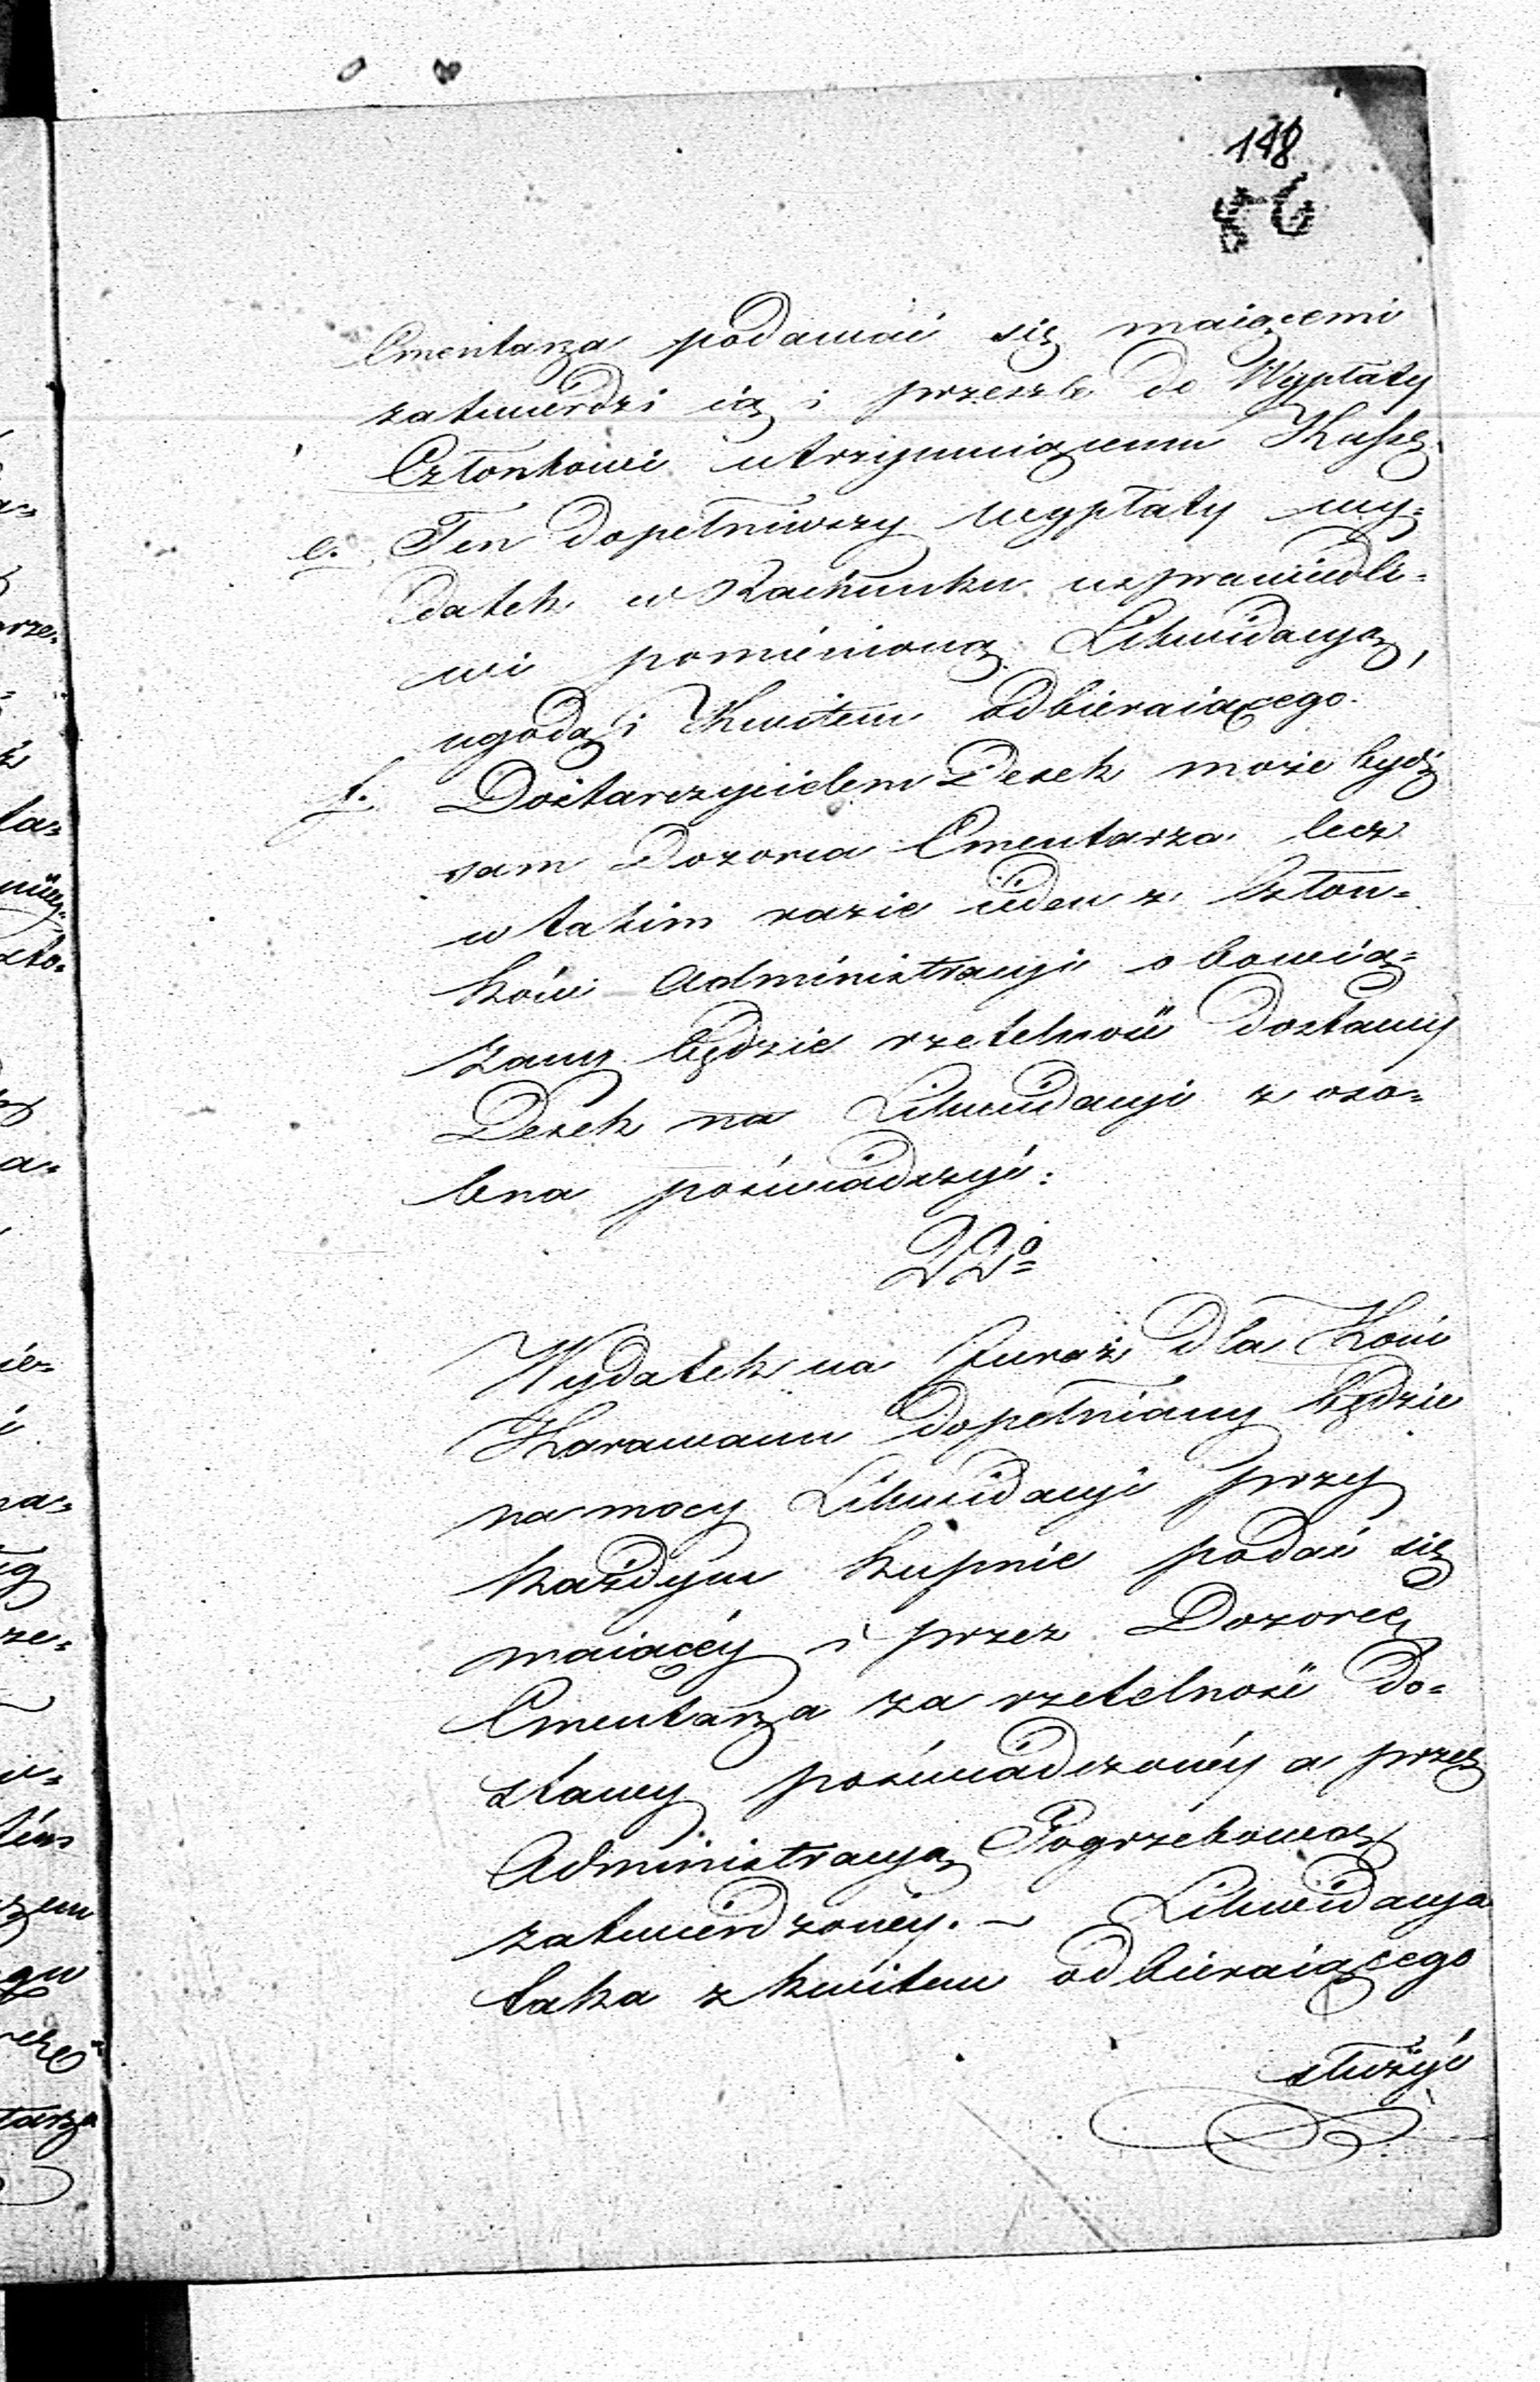 148
86
Cmentarza podawać się maiącemi
zatwierdzi ią i przeszle do Wypłaty
Członkowi utrzymuiącemu Kassę.
e. Ten dopełniwszy wypłaty wy=
datek w Rachunku usprawiedli=
wi pomienioną Likwidacyą,
ugodą i Kwitem odbieraiącego.
f. Dostarczycielem Desek może bydź
sam Dozorca Cmentarza lecz
w takim razie ieden z Człon=
ków Administracyi obowią=
zany będzie rzetelność dostawy
Desek na Likwidacyi z oso=
bna poświadczyć.
22o
Wydatek na furaż dla Koni
Karawanu dopełniany będzie
na mocy Likwidacyi przy
każdym kupnie podać się
maiącéy i przez Dozorcę
Cmentarza za rzetelność do=
stawy poświadczonéy a przez
Administracyą Pogrzebową
zatwierdzonéy. ~ Likwidacya
taka z kwitem odbieraiącego
służyć